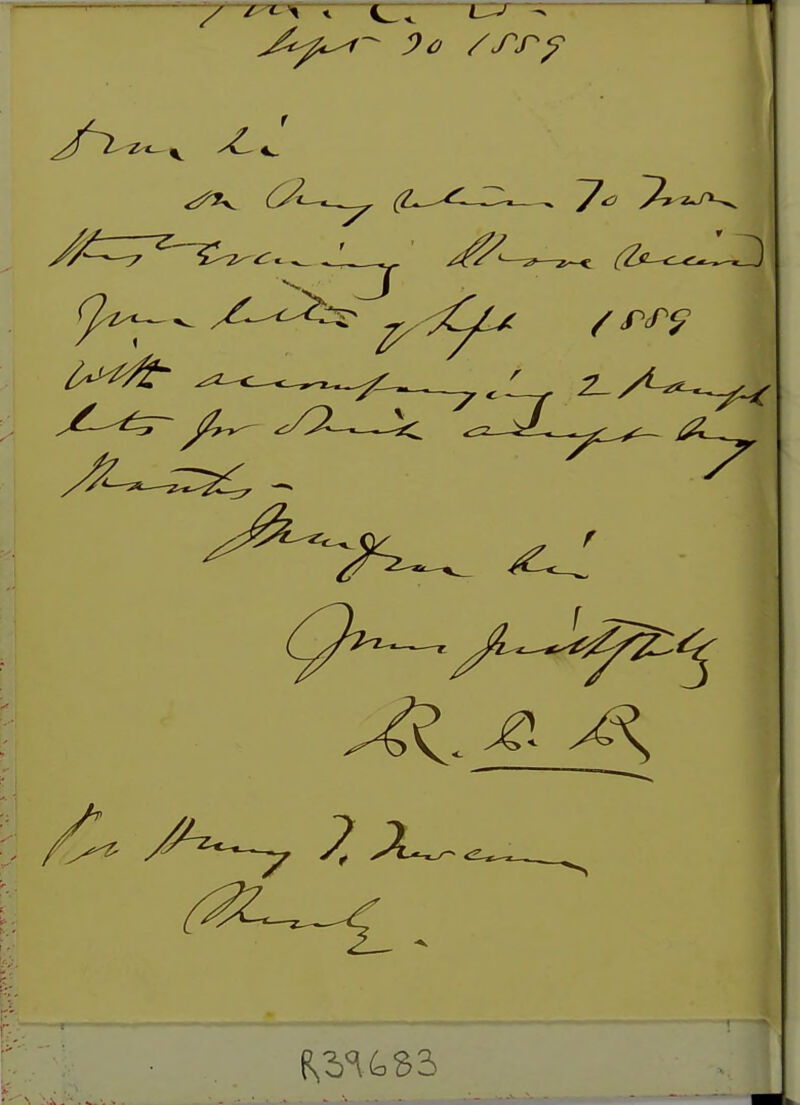 Sept 30 1889
Dear Sir
on my return To Town
this Evening I have received
your letter of Sept 1889
with accompanying 2 Pamph
lets for which accept my
thanks -
I am Dear Sir
Yours faithfully
R. S. R
For Henry T.
R39683